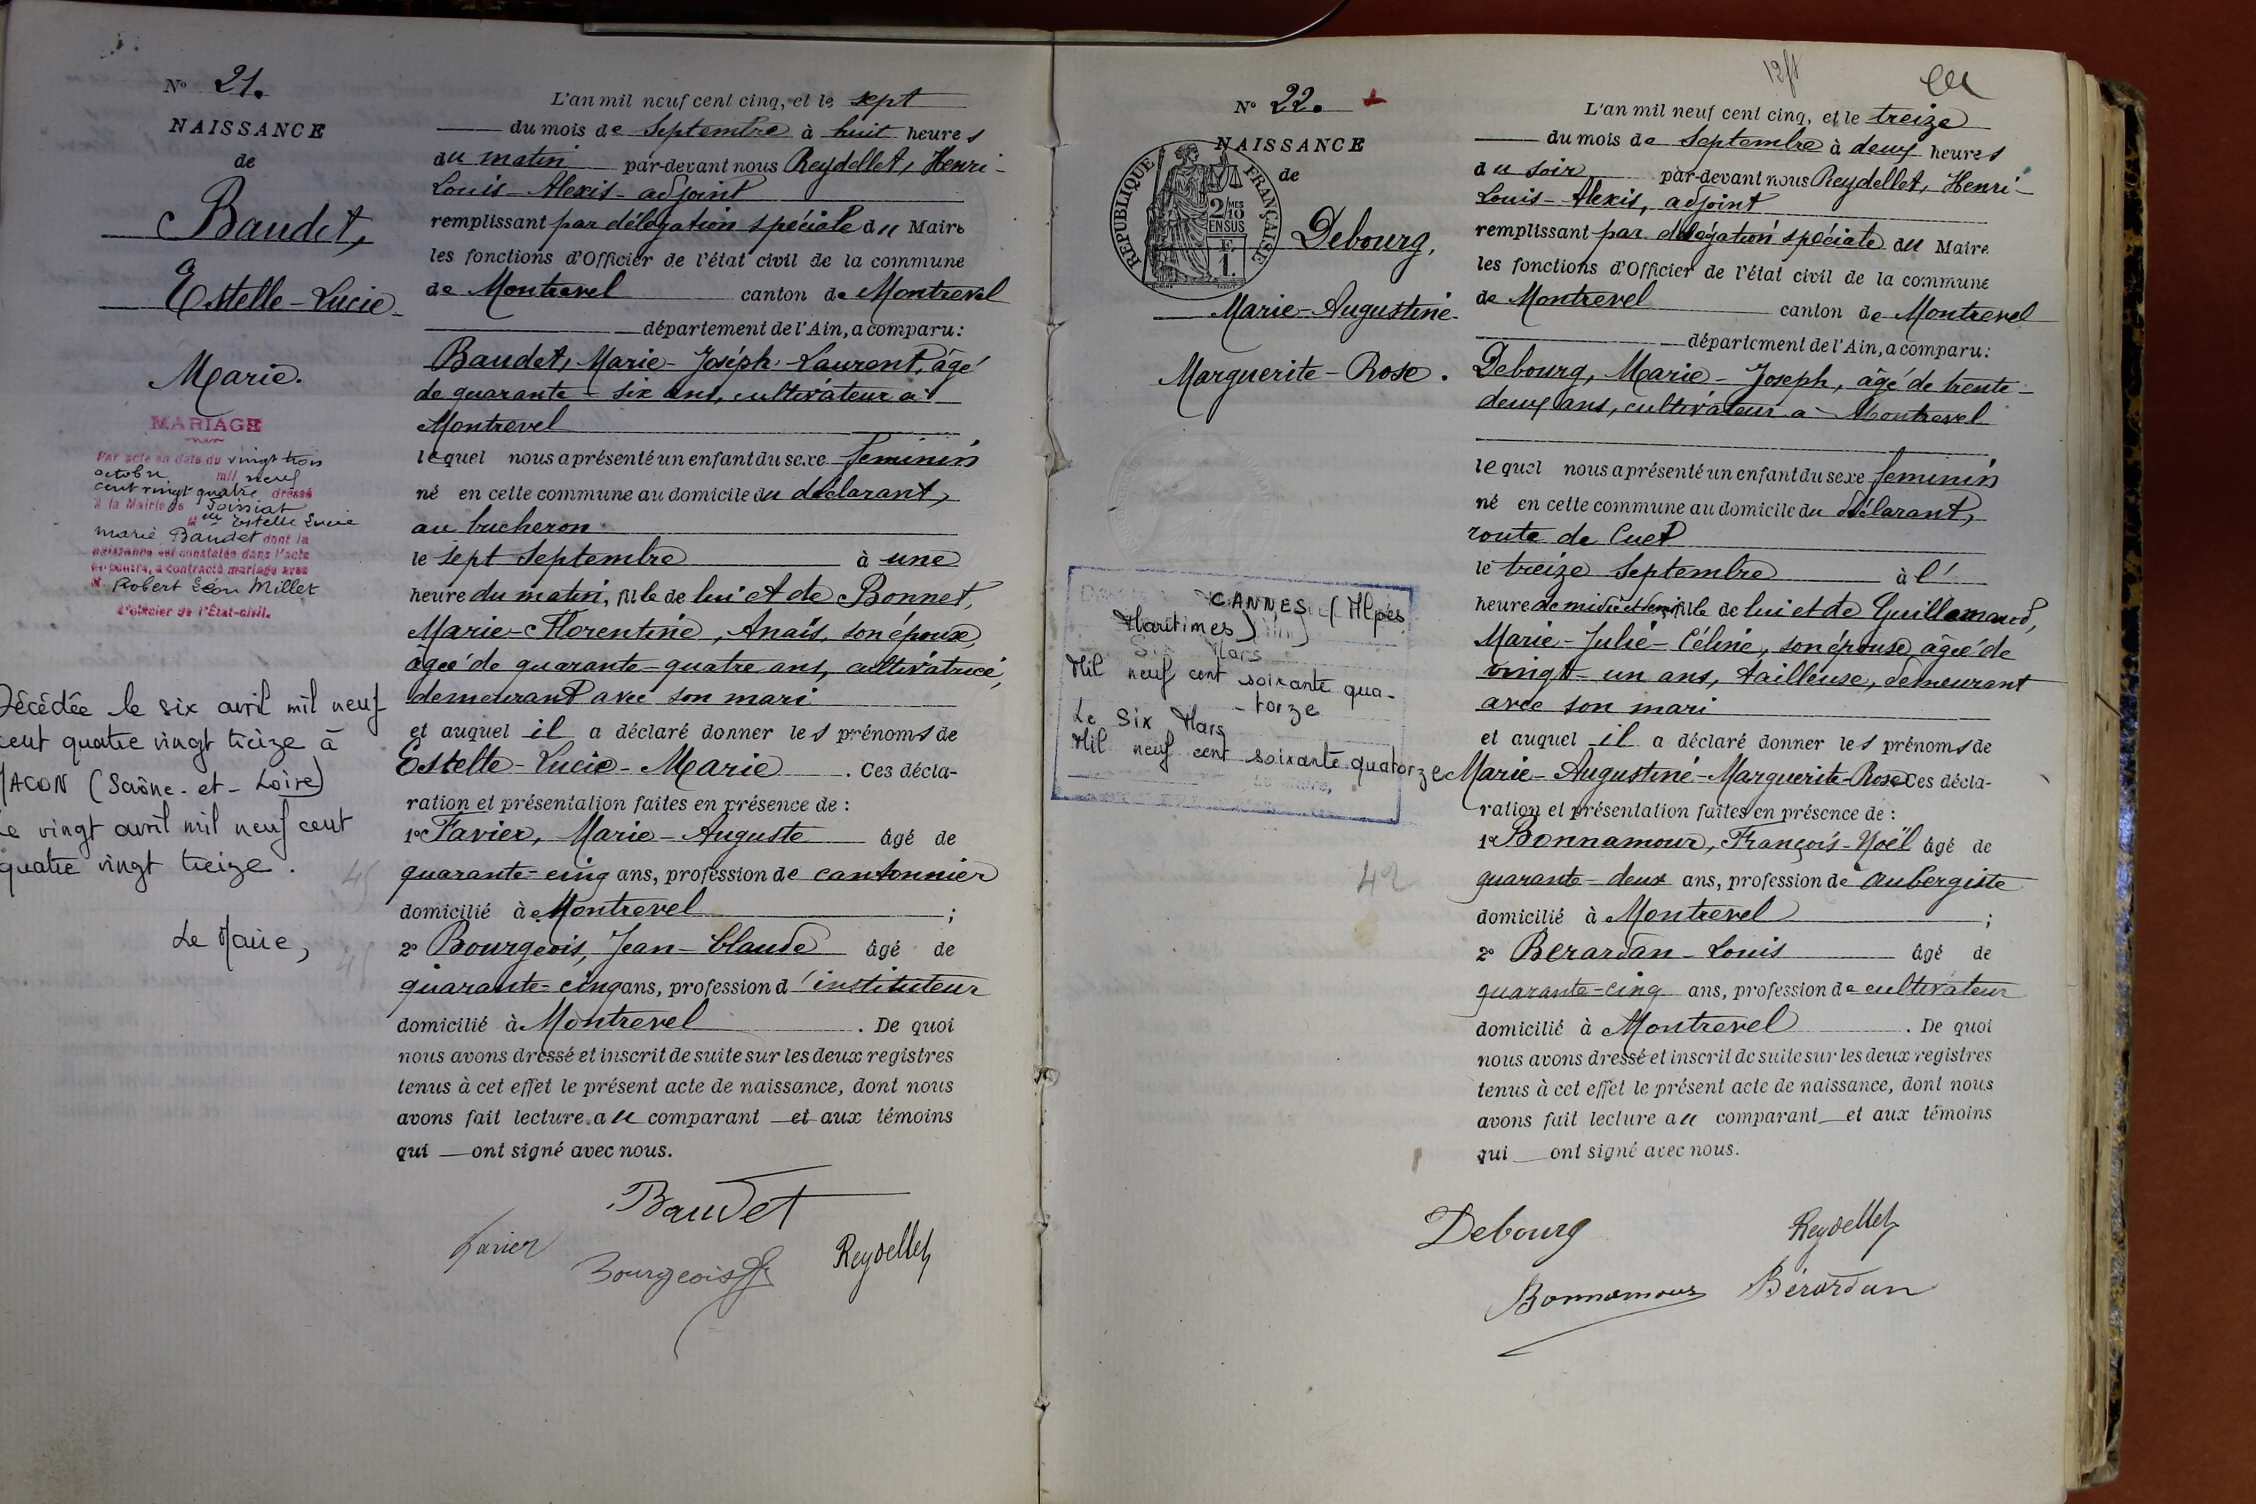 No 21.
NAISSANCE
de
Baudet,
Estelle-Lucie-
Marie.
MARIAGE
Par acte en date du vingt trois
octobre mil neuf
cent vingt quatre dressé
à la Mairie de Foissiat
Mlle Estelle Lucie
Marie Baudet dont la
naissance est constatée dans l'acte
ci-contre, a contracté mariage avec
M. Robert Léon Millet
L'officier de l'État-civil.
Décédée le six avril mil neuf
cent quatre vingt treize à
MACON (Saône-et-Loire)
Le vingt avril mil neuf cent
quatre vingt treize.
Le Maire,
45
45
L'an mil neuf cent cinq, et le sept
du mois de Septembre à huit heures
du matin par-devant nous Reydellet, Henri-
Louis-Alexis-adjoint
remplissant par délégation spéciale du Maire
les fonctions d'Officier de l'état civil de la commune
de Montrevel canton de Montrevel
département de l'Ain, a comparu:
Baudet, Marie-Joseph-Laurent, âgé
de quarante-six ans, cultivateur à
Montrevel
lequel nous a présenté un enfant du sexe feminin
né en cette commune au domicile du déclarant,
au bucheron
le sept Septembre à une
heure du matin, fille de lui et de Bonnet,
Marie-Florentine, Anaïs, son épouse,
âgée de quarante-quatre ans, cultivatrice,
demeurant avec son mari
et auquel il a déclaré donner les prénoms de
Estelle-Lucie-Marie. Ces décla-
ration et présentation faites en présence de:
1º Favier, Marie-Auguste âgé de
quarante-cinq ans, profession de cantonnier
domicilié à Montrevel;
2º Bourgeois, Jean-Claude âgé de
quarante-cinq ans, profession d'instituteur
domicilié à Montrevel. De quoi
nous avons dressé et inscrit de suite sur les deux registres
tenus à cet effet le présent acte de naissance, dont nous
avons fait lecture au comparant et aux témoins
qui ont signé avec nous.
Baudet
Favier
Bourgeois
Reydellet
No 22.
NAISSANCE
de
RÉPUBLIQUE FRANÇAISE
2/10MES
EN SUS
F
1.
Debourg,
Marie-Augustine-
Marguerite-Rose.
CANNES (Alpes
Maritimes)
Six Mars
Mil neuf cent soixante qua-
-torze
Le Six Mars
Mil neuf cent soixante quatorze
42
L'an mil neuf cent cinq, et le treize
du mois de Septembre à deux heures
du soir par-devant nous Reydellet, Henri-
Louis-Alexis, adjoint
remplissant par délégation spéciale du Maire
les fonctions d'Officier de l'état civil de la commune
de Montrevel canton de Montrevel
département de l'Ain, a comparu:
Debourg, Marie-Joseph, âgé de trente-
deux ans, cultivateur à Montrevel
lequel nous a présenté un enfant du sexe feminin
né en cette commune au domicile du déclarant,
route de Cuet
le treize Septembre à l'
heure de midi et demi, fille de lui et de Guillemaud,
Marie-Julie-Céline, son épouse, âgée de
vingt-un ans, tailleuse, demeurant
avec son mari
et auquel il a déclaré donner les prénoms de
Marie-Augustine-Marguerite-Rose Ces décla-
ration et présentation faites en présence de:
1º Bonnamour, François-Noël âgé de
quarante-deux ans, profession de aubergiste
domicilié à Montrevel;
2º Berardan-Louis âgé de
quarante-cinq ans, profession de cultivateur
domicilié à Montrevel. De quoi
nous avons dressé et inscrit de suite sur les deux registres
tenus à cet effet le présent acte de naissance, dont nous
avons fait lecture au comparant et aux témoins
qui ont signé avec nous.
Debourg
Reydellet
Bonnamour
Bérardan